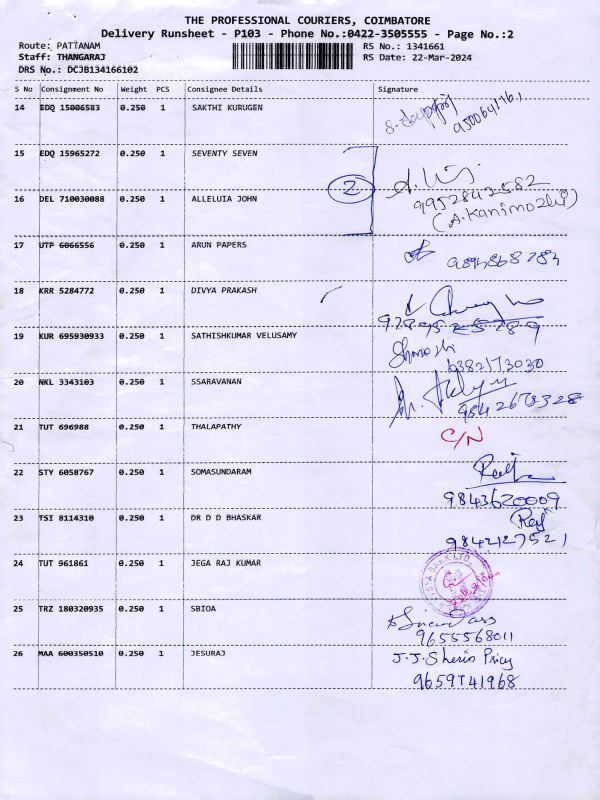 THE PROFESSIONAL COURIERS, COIMBATORE
Delivery Runsheet - P103 - Phone No.:0422-3505555 - Page No.:2
Route: PATTANAM RS No.: 1341661
Staff: THANGARAJ RS Date: 22-Mar-2024
DRS No.: DCJB134166102
S No Consignment No Weight PCS Consignee Details Signature
14 EDQ 15006583 0.250 1 SAKTHI KURUGEN
15 EDQ 15965272 0.250 1 SEVENTY SEVEN
2
9952842582
16 DEL 710030088 0.250 1 ALLELUIA JOHN
(A.Kanimozhi)
17 UTP 6066556 0.250 1 ARUN PAPERS
18 KRR 5284772 0.250 1 DIVYA PRAKASH
19 KUR 695930933 0.250 1 SATHISHKUMAR VELUSAMY
20 NKL 3343103 0.250 1 SSARAVANAN
21 TUT 696988 0.250 1 THALAPATHY C/N
22 STY 6058767 0.250 1 SOMASUNDARAM
9843620009
23 TSI 8114310 0.250 1 DR D D BHASKAR
9842127521
24 TUT 961861 0.250 1 JEGA RAJ KUMAR
25 TRZ 180320935 0.250 1 SBIOA
9655568011
26 MAA 600350510 0.250 1 JESURAJ J.J.Sherin
9659741968